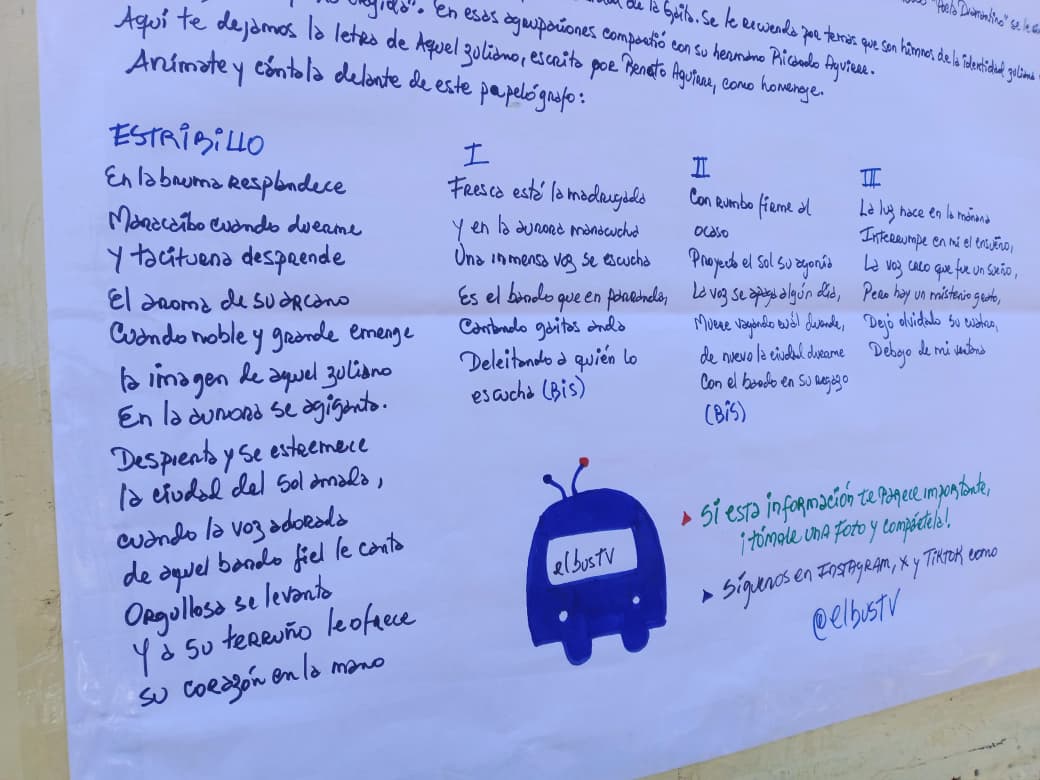 "Poeta Diamantino" se le
ogida". En esas agrupaciones compartió con su hermano Ricardo Aguirre.
de la Gaita. Se le recuerda por temas que son himnos de la identidad zuliana
Aquí te dejamos la letra de Aquel zuliano, escrita por Renato Aguirre, como homenaje.
Anímate y cántala delante de este papelógrafo:
ESTRIBILLO
En la bruma resplandece
Maracaibo cuando duerme
y taciturna desprende
El aroma de su arcano
Cuando noble y grande emerge
la imagen de aquel zuliano
En la aurora se agiganta.
Despierta y se estremece
la ciudad del sol amada,
cuando la voz adorada
de aquel bardo fiel le canta
Orgullosa se levanta
Y a su terruño le ofrece
su corazón en la mano
I
Fresca está la madrugada
y en la aurora maracucha
Una inmensa voz se escucha
Es el bardo que en parranda,
Cantando gaitas anda
Deleitando a quién lo
escucha (Bis)
II
Con rumbo firme al
ocaso
Proyecta el sol su agonía
La voz se apaga algún día,
Muere vagando cuál duende,
de nuevo la ciudad duerme
Con el bardo en su regazo
(Bis)
III
La luz nace en la mañana
Interrumpe en mi el ensueño,
La voz creo que fue un sueño,
Pero hay un misterio grato,
Dejó olvidado su cuatro,
Debajo de mi ventana
elbusTV
Si esta información te parece importante,
¡tómale una foto y compártela!
Síguenos en Instagram, X y TikTok como
@elbusTV